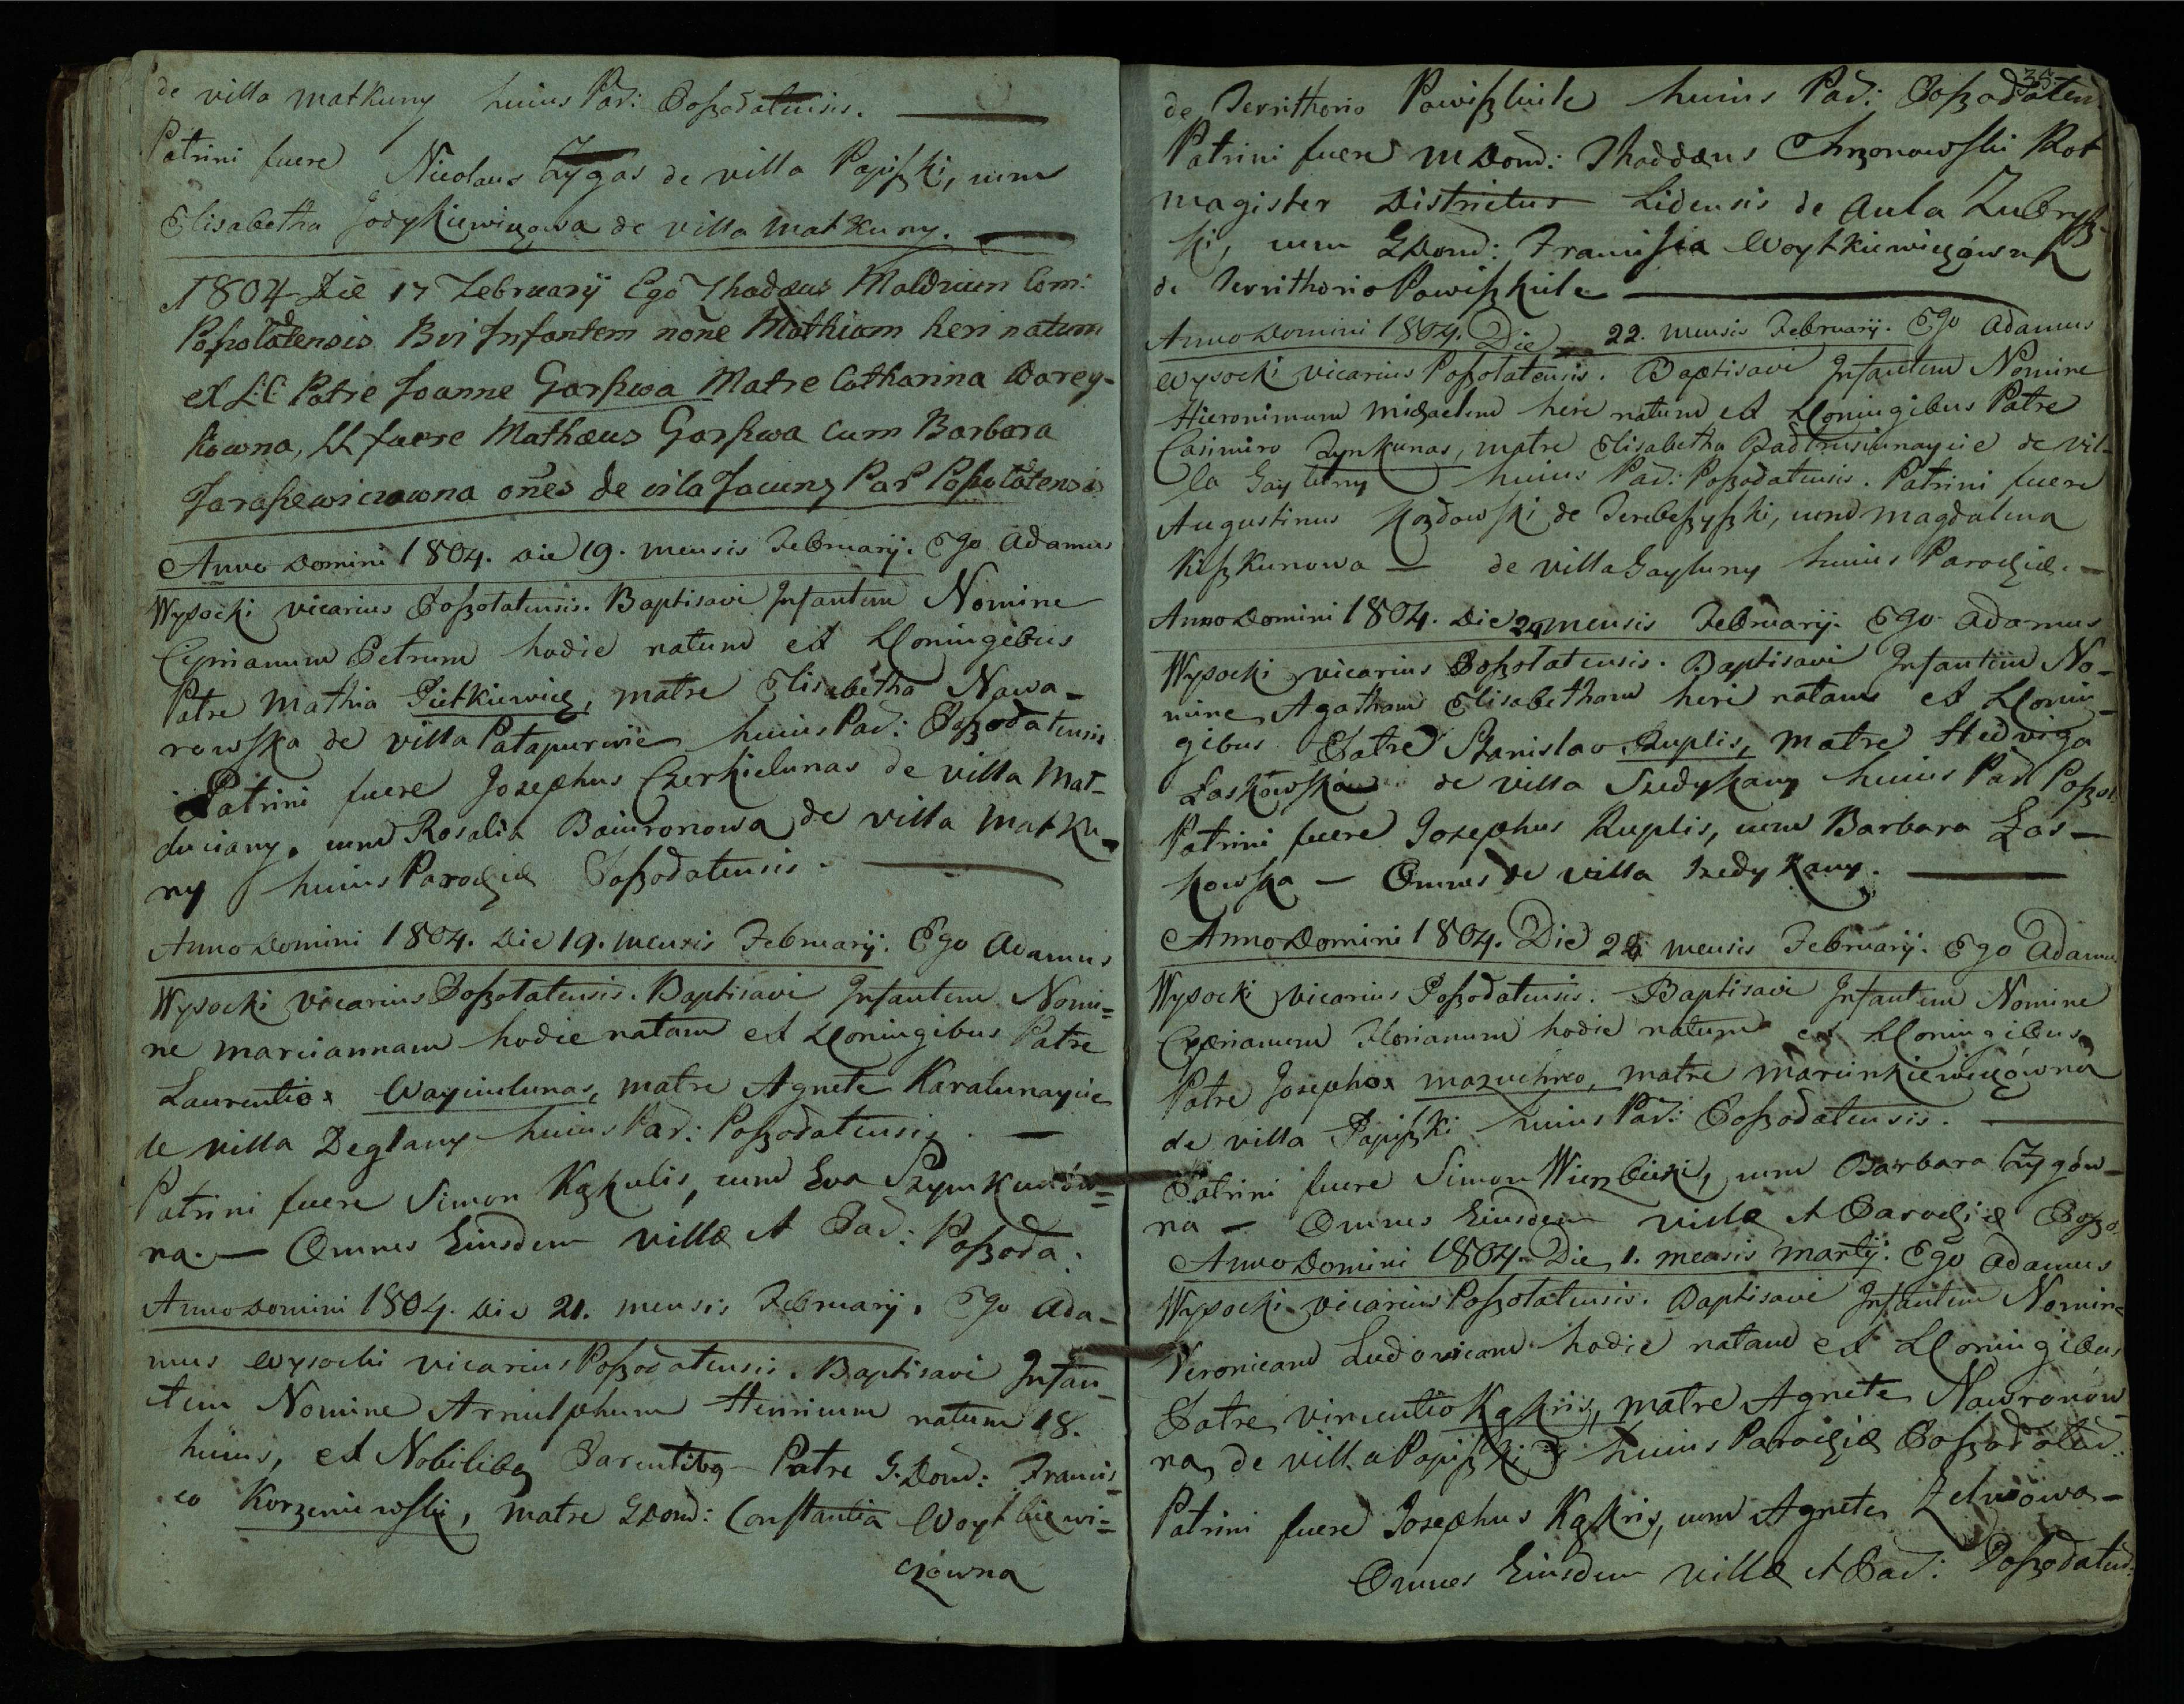 de villa Matkuny huius Par: Poßodatensis.
Patrini fuere Nicolaus Zygas de villa Papißki, cum
Elisabetha Jodykiewiczowa de villa Matkuny.
1804 Die 17 Februarij Ego Thadæus Maldziun Com:
Poßolatensis Bvi Infantem nōne Mathiam heri natum
ex LC Patre Joanne Garßwa Matre Catharina Darey-
kowna, LL fuere Mathæus Garßwa cum Barbara
Jaraßewiczowna oñes de vila Jacuny Par Poßolatensis
Anno Domini 1804. Die 19. mensis Februarij. Ego Adamus
Wysocki vicarius Poßolatensis. Baptisavi Infantem Nomine
Cyprianum Petrum hodie natum ex LConiugibus
Patre Mathia Pietkiewicz, matre Elisabetha Nawa-
rowska de villa Patapurwie huius Par: Poßodatensis
Patrini fuere Josephus Czerkielunas de villa Mat-
duciany, cum Rosalia Baiuronowa de villa Matku-
ny huius Parochiæ Poßodatensis.
Anno Domini 1804. Die 19. mensis Februarij. Ego Adamus
Wysocki vicarius Poßolatensis. Baptisavi Infantem Nomi=
ne Mariannam hodie natam ex LConiugibus Patre
Laurentio Wayciulunas, matre Agnete Karalunaycie
de villa Deglany huius Par: Poßodatensis.
Patrini fuere Simon Kąkulis, cum Eva Szymkunów=
na. — Omnes Eiusdem villæ et Par: Poßoda:
Anno Domini 1804. Die 21. mensis Februarij. Ego Ada-
mus Wysocki vicarius Poßodatensis. Baptisavi Infan-
tem Nomine Arnulphum Henricum natum 18.
huius, ex Nobilibg Parentibg Patre G. Dom: Francis-
co Korzeniewski, matre GDom: Constantia Woytkiewi=
czowna
35
de Territhorio Powißkule huius Par: Poßodaten.
Patrini fuere MDom: Thaddæus Chrzonowski Rot
magister Districtus Lidensis de Aula Zubryß-
ki, cum GDom: Francisca Woytkiewiczówna
de Territhorio Powißkule
Anno Domini 1804. Die 22. mensis Februarij. Ego Adamus
Wysocki vicarius Poßolatensis. Baptisavi Infantem Nomine
Hieronimum Michaelem heri natum ex LConiugibus Patre
Casimiro Zynkunas, matre Elisabetha de vil-
la Gayluny huius Par: Poßodatensis. Patrini fuere
Augustinus Kozłowski de Terebeßyßki, cum Magdalena
Kißkunowa — de villa Gayluny huius Parochiæ. —
Anno Domini 1804. Die 24 mensis Februarij. Ego Adamus
Wysocki vicarius Poßolatensis. Baptisavi Infantem No-
mine Agatham Elisabetham heri natam ex LConiu-
gibus Patre Stanislao Ruplis, matre Hedviga
Laskowsków de villa Szedykany huius Par Poßol.
Patrini fuere Josephus Ruplis, cum Barbara Las-
kowska — Omnes de villa Szedykany.
Anno Domini 1804. Die mensis Februarij. Ego Adamu
Wysocki vicarius Poßodatensis. Baptisavi Infantem Nomine
Cyprianum Florianum hodie natum ex LConiugibus
Patre Josepho Mazuchno, matre Marcinkiewiczówna
de villa Papißki huius Par: Poßodatensis.
Patrini fuere Simon Wierzbicki, cum Barbara Zygów-
na — Omnes Eiusdem villæ et Parochiæ Poßo.
Anno Domini 1804. Die 1. mensis Martij. Ego Adamus
Wysocki vicarius Poßolatensis. Baptisavi Infantem Nomine
Veronicam Ludovicam hodie natam ex LConiugibus
Patre Vincentio Kąkris, matre Agnete Nawronów-
na, de villa Papißki huius Parochiæ Poßodaten:
Patrini fuere Josephus Kąkris, cum Agnete Zelwiowa —
Omnes Eiusdem villæ et Par: Poßodaten: